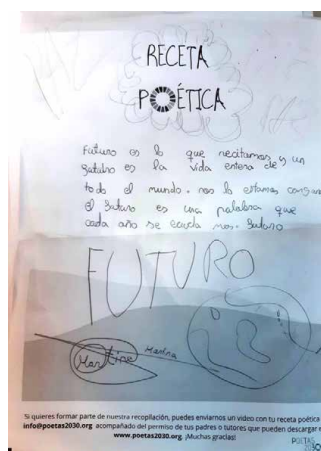 RECETA
POÉTICA
Futuro es lo que necitamos y un
futuro es la vida entera de
todo el mundo. nos lo estamos
el futuro es una palabra que
cada año se mas. Futuro
FUTURO
Martina
Martina
Si quieres formar parte de nuestra recopilación, puedes enviarnos un video con tu receta poética
info@poetas2030.org acompañado del permiso de tus padres o tutores que pueden descargar
www.poetas2030.org. ¡Muchas gracias!
POETAS
2030